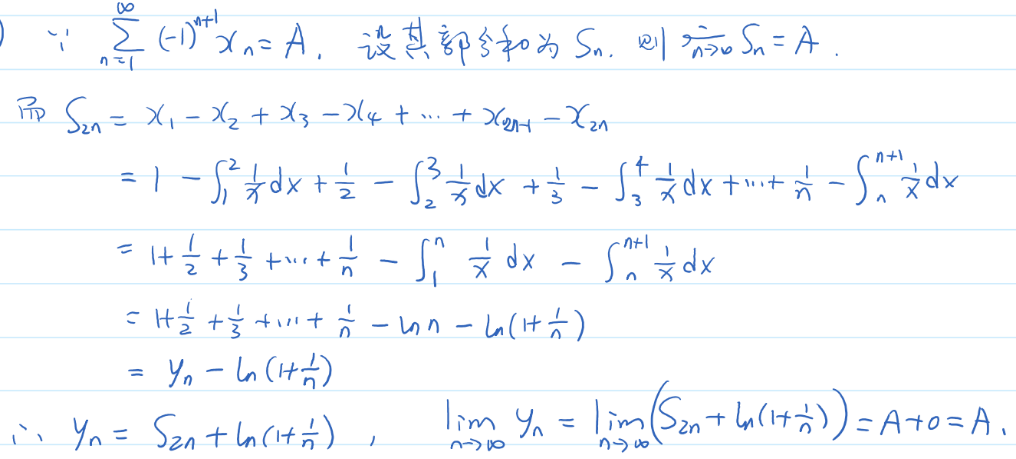 ) ∵ ∑_{n=1}^{∞} (-1)^{n+1} x_n = A. 设其部分和为 S_n. 则 lim_{n→∞} S_n = A.
而 S_{2n} = x_1 - x_2 + x_3 - x_4 + ⋯ + x_{2n-1} - x_{2n}
= 1 - ∫_1^2 1/x dx + 1/2 - ∫_2^3 1/x dx + 1/3 - ∫_3^4 1/x dx + ⋯ + 1/n - ∫_n^{n+1} 1/x dx
= 1 + 1/2 + 1/3 + ⋯ + 1/n - ∫_1^n 1/x dx - ∫_n^{n+1} 1/x dx
= 1 + 1/2 + 1/3 + ⋯ + 1/n - ln n - ln(1 + 1/n)
= y_n - ln(1 + 1/n)
∴ y_n = S_{2n} + ln(1 + 1/n), lim_{n→∞} y_n = lim_{n→∞} (S_{2n} + ln(1 + 1/n)) = A + 0 = A.